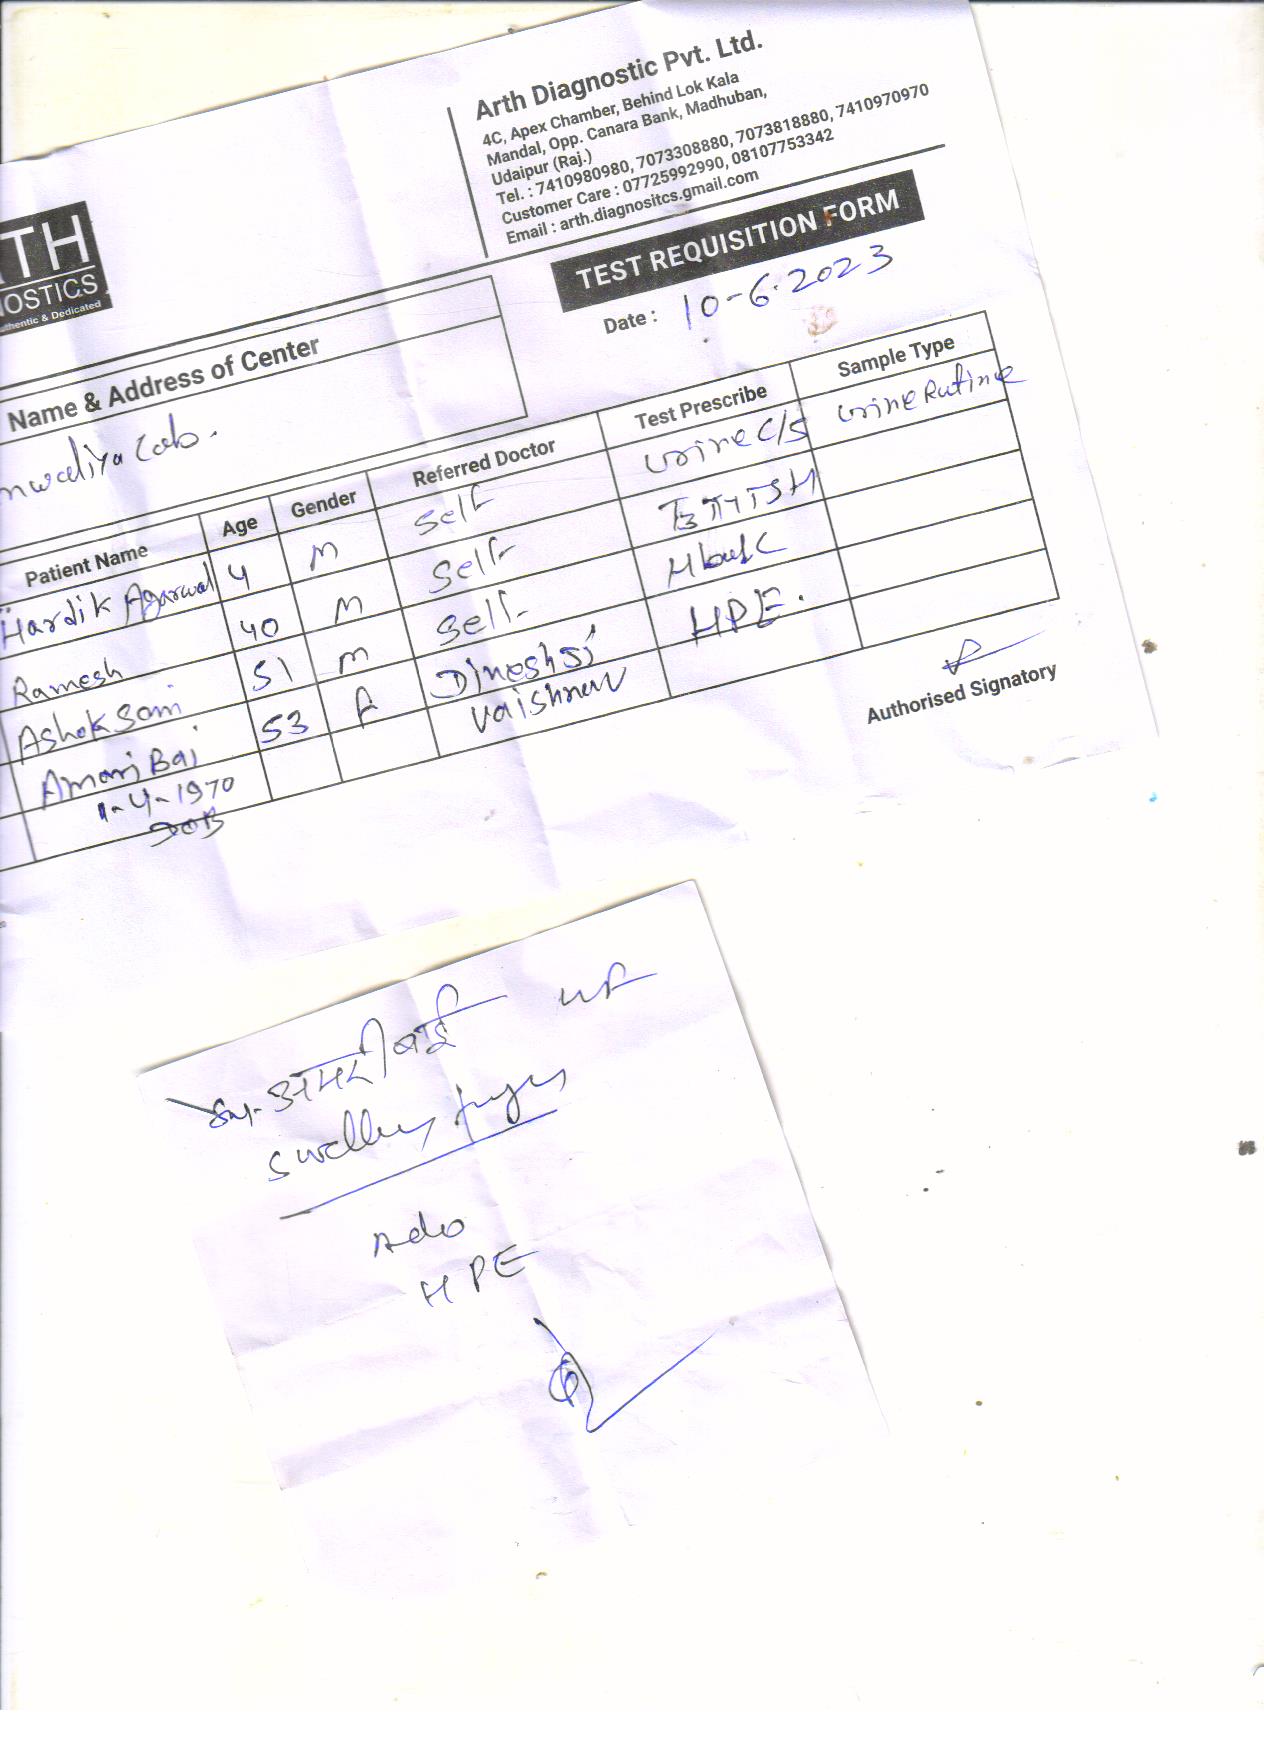 Arth Diagnostic Pvt. Ltd.
4C, Apex Chamber, Behind Lok Kala
Mandal, Opp. Canara Bank, Madhuban,
Udaipur (Raj.)
Tel. : 7410980980, 7073308880, 7073818880, 7410970970
Customer Care : 07725992990, 08107753342
Email : arth.diagnositcs.gmail.com
TH
NOSTICS
uthentic & Dedicated
TEST REQUISITION FORM
Date : 10-6.2023
Name & Address of Center
nwaliya Lab.
Patient Name Age Gender Referred Doctor Test Prescribe Sample Type
Hardik Agarwal 4 M Self Urine C/S Urine Rutine
Ramesh 40 M Self T3 T4 TSH
Ashok Soni 51 M Self
Amari Bai 53 F Dinesh Ji HPE.
1-4-1970 Vaishnav
DOB
Authorised Signatory
अमरी बाई
Swelling
Ado
HPE